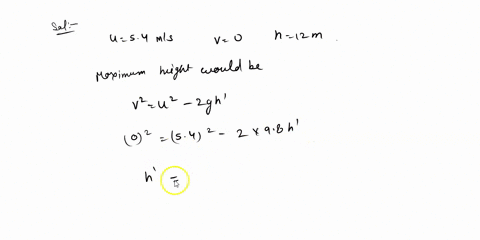 Sol:-
u = 5.4 m/s v = 0 h = 12 m .
Maximum height would be
v² = u² - 2gh'
(0)² = (5.4)² - 2 × 9.8 h'
h' =